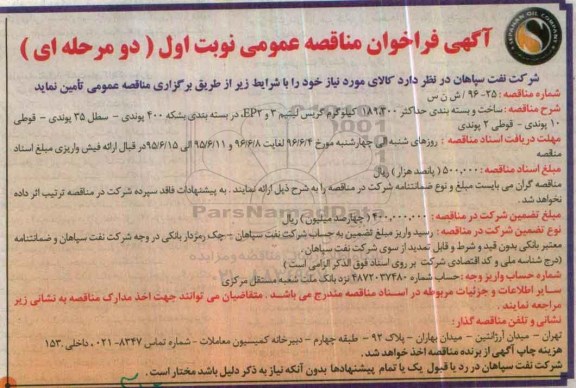 SEPAHAN OIL COMPANY
آگهی فراخوان مناقصه عمومی نوبت اول ( دو مرحله ای )
شرکت نفت سپاهان در نظر دارد کالای مورد نیاز خود را با شرایط زیر از طریق برگزاری مناقصه عمومی تأمین نماید
شماره مناقصه : ۲۵- ۹۶ / ش ن س
شرح مناقصه : ساخت و بسته بندی حداکثر ۱۸۹,۳۰۰ کیلوگرم گریس لیتیم ۳ و EP۲، در بسته بندی بشکه ۴۰۰ پوندی - سطل ۳۵ پوندی - قوطی
۱۰ پوندی - قوطی ۲ پوندی
مهلت دریافت اسناد مناقصه : روزهای شنبه الی چهارشنبه مورخ ۹۶/۶/۴ لغایت ۹۶/۶/۸ و ۹۵/۶/۱۱ الی ۹۵/۶/۱۵در قبال ارائه فیش واریزی مبلغ اسناد
مناقصه
مبلغ اسناد مناقصه : ۵۰۰,۰۰۰ ( پانصد هزار ) ریال
مناقصه گران می بایست مبلغ و نوع ضمانتنامه شرکت در مناقصه را به شرح ذیل ارائه نمایند . به پیشنهادات فاقد سپرده شرکت در مناقصه ترتیب اثر داده
نخواهد شد.
مبلغ تضمین شرکت در مناقصه : ۴۰۰,۰۰۰,۰۰۰ ( چهارصد میلیون ) ریال
نوع تضمین شرکت در مناقصه : رسید واریز مبلغ تضمین به حساب شرکت نفت سپاهان - چک رمزدار بانکی در وجه شرکت نفت سپاهان و ضمانتنامه
معتبر بانکی بدون قید و شرط و قابل تمدید از سوی شرکت نفت سپاهان
(درج شناسه ملی و کد اقتصادی شرکت بر روی اسناد فوق الذکر الزامی است )
شماره حساب واریز وجه : حساب شماره ۴۸۷۲۰۳۷۴۸۰ نزد بانک ملت شعبه مستقل مرکزی
سایر اطلاعات و جزئیات مربوطه در اسناد مناقصه مندرج می باشد . متقاضیان می توانند جهت اخذ مدارک مناقصه به نشانی زیر
مراجعه نمایند .
نشانی و تلفن مناقصه گذار:
تهران - میدان آرژانتین - میدان بهاران - پلاک ۹۲ - طبقه چهارم - دبیرخانه کمیسیون معاملات - شماره تماس ۸۳۴۷-۰۲۱ ، داخلی ۱۵۳.
هزینه چاپ آگهی از برنده مناقصه اخذ خواهد شد.
شرکت نفت سپاهان در رد یا قبول یک یا تمام پیشنهادها بدون آنکه نیاز به ذکر دلیل باشد مختار است .
ParsNamadData